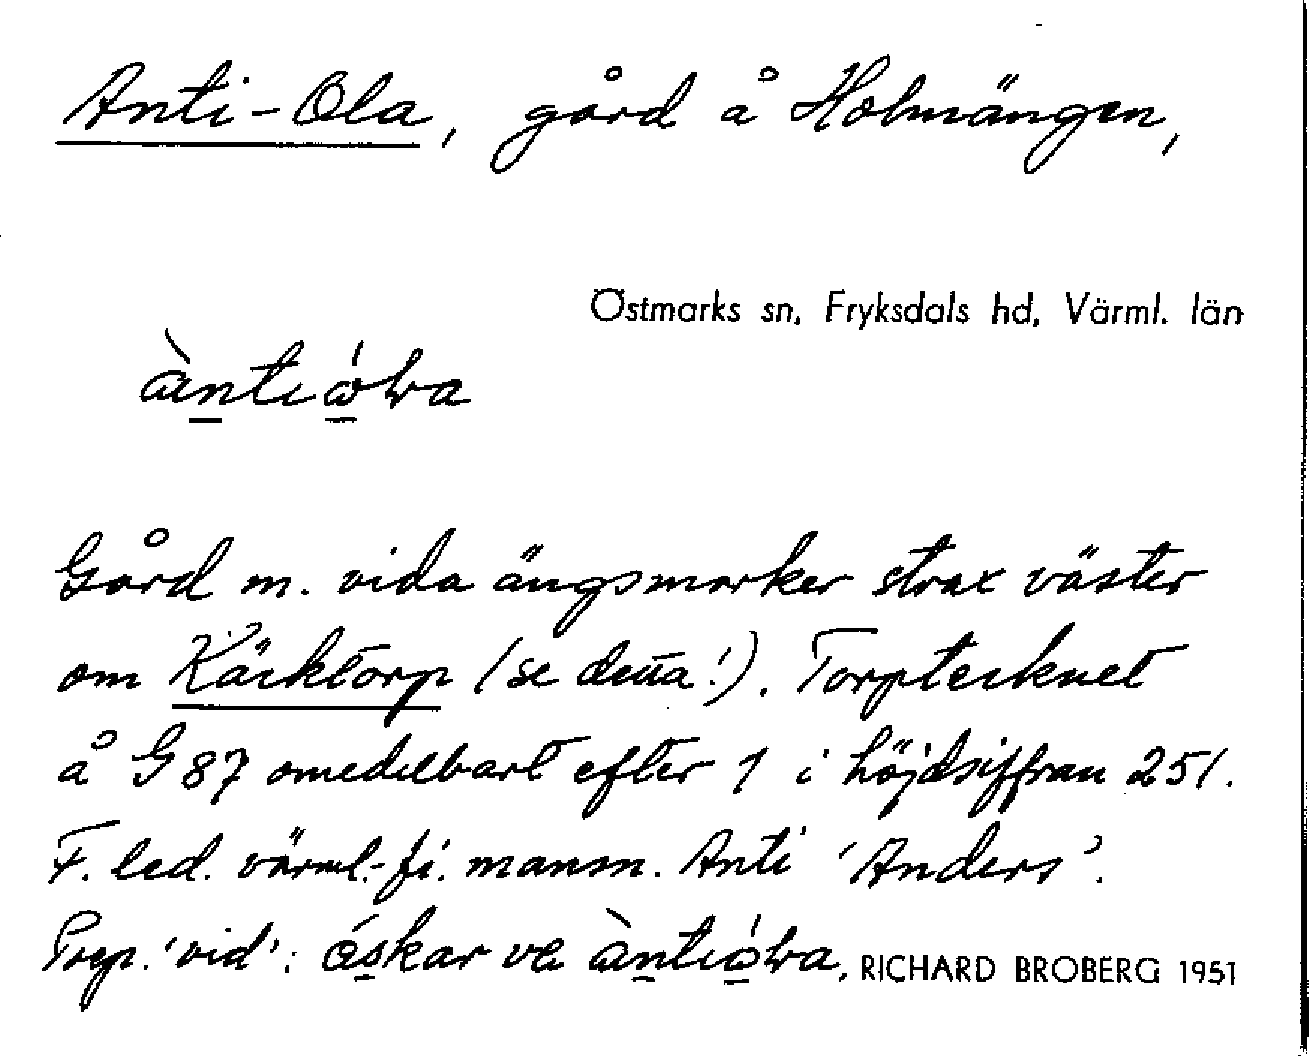 Anti-Ola, gård å Holmängen,
Östmarks sn, Fryksdals hd, Värml. län
Gård m. vida ängsmarker strax väster
om Käcktorp (se detta!). Torptecknet
å G 87 omedelbart efter 1 i höjdsiffran 251.
F. led. värml.-fi. mansn. Anti 'Anders'.
Prep. 'vid': RICHARD BROBERG 1951